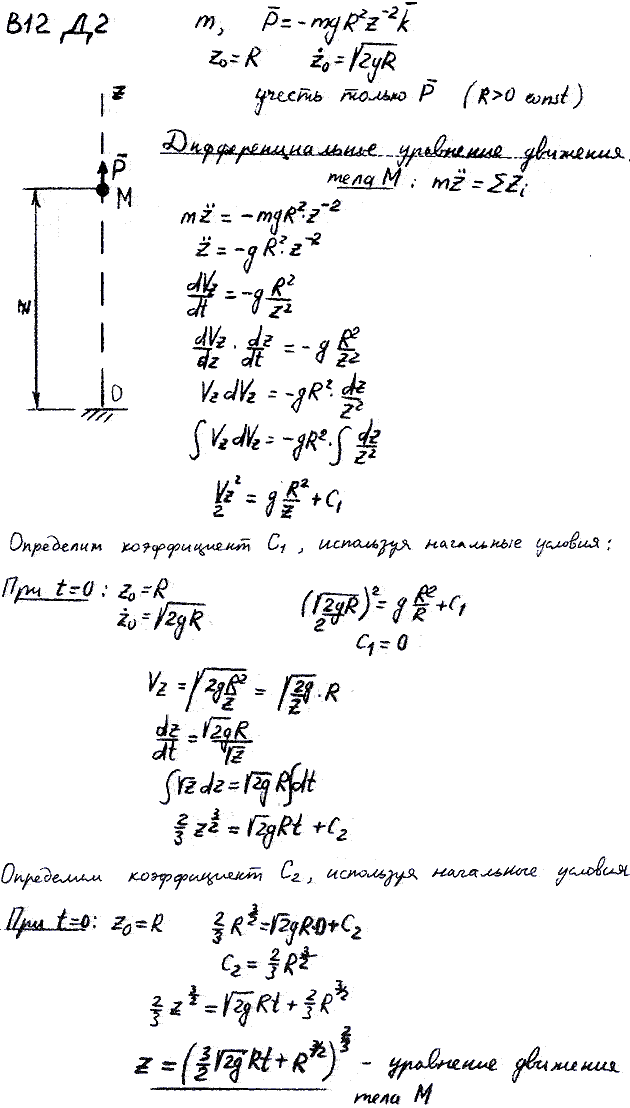 В12 Д2
m, P̄ = -mgR²z⁻²k̄
z₀ = R ż₀ = √2gR
учесть только P̄ (R>0 const)
Дифференциальное уравнение движения
тела М: mz̈ = ΣZᵢ
z
P̄
M
z
O
mz̈ = -mgR²·z⁻²
z̈ = -gR²·z⁻²
dVz/dt = -g R²/z²
dVz/dz · dz/dt = -g R²/z²
VzdVz = -gR²· dz/z²
∫VzdVz = -gR²·∫dz/z²
Vz²/2 = g R²/z + C₁
Определим коэффициент C₁, используя начальные условия:
При t=0: z₀ = R
ż₀ = √2gR (√2gR)²/2 = g R²/R + C₁
C₁ = 0
Vz = √(2gR²/z) = √(2g/z)·R
dz/dt = √2g R/√z
∫√z dz = √2g R∫dt
2/3 z^(3/2) = √2g Rt + C₂
Определим коэффициент C₂, используя начальные условия
При t=0: z₀ = R 2/3 R^(3/2) = √2g R·0 + C₂
C₂ = 2/3 R^(3/2)
2/3 z^(3/2) = √2g Rt + 2/3 R^(3/2)
z = (3/2 √2g Rt + R^(3/2))^(2/3) - уравнение движения
тела М